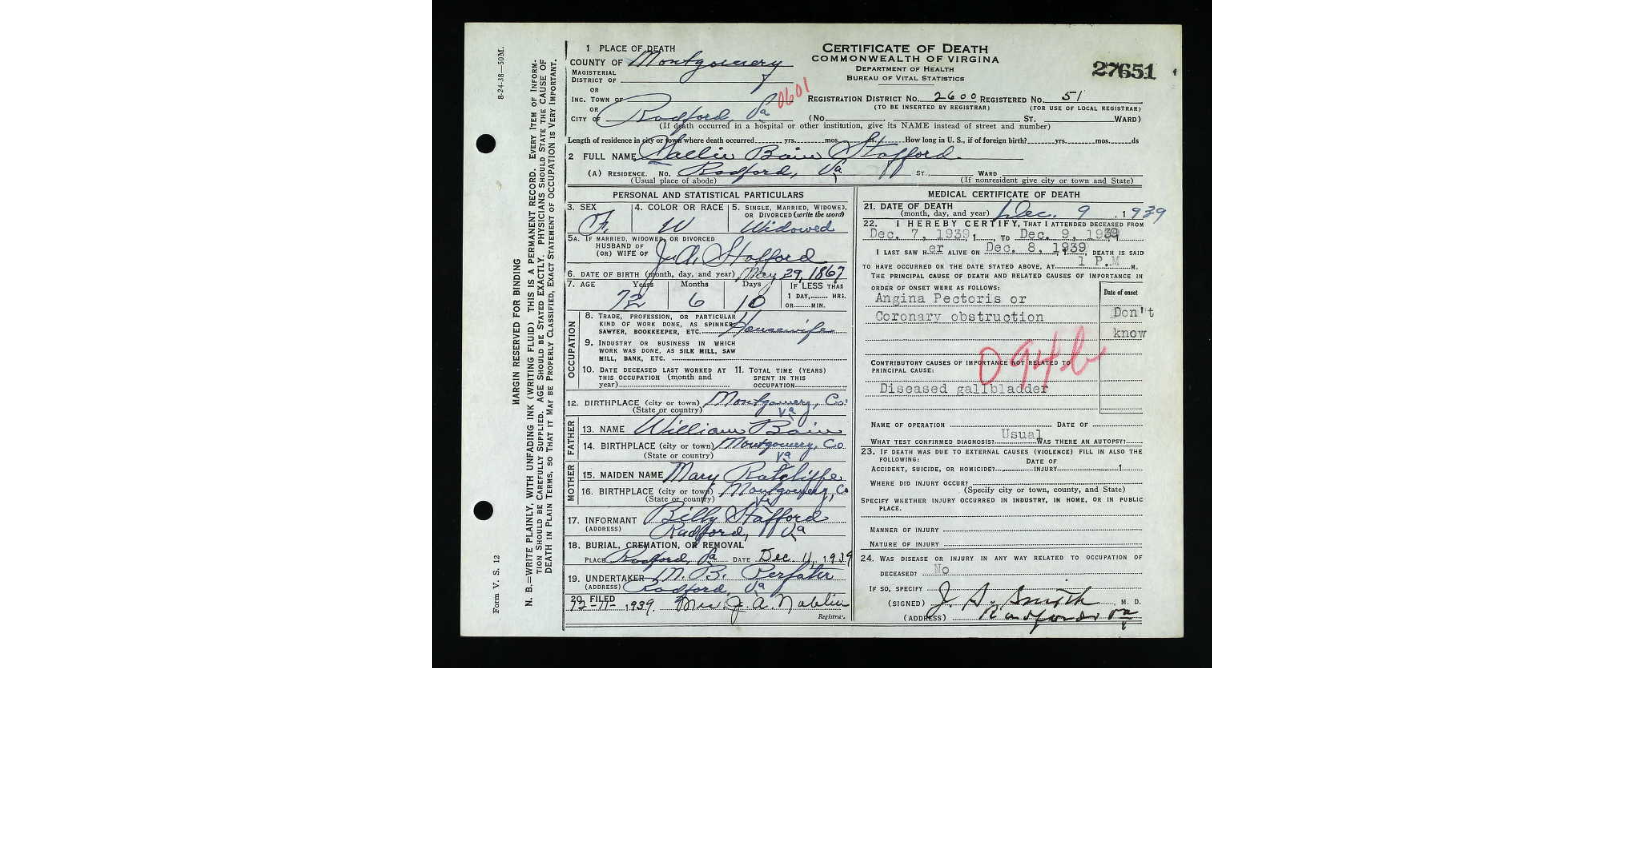 1 PLACE OF DEATH
COUNTY OF Montgomery
MAGISTERIAL
DISTRICT OF
OR
INC. TOWN OF
OR
CITY OF Radford, Va
0601
CERTIFICATE OF DEATH
COMMONWEALTH OF VIRGINIA
DEPARTMENT OF HEALTH
BUREAU OF VITAL STATISTICS
27651
REGISTRATION DISTRICT NO. 2600 REGISTERED NO. 51
(TO BE INSERTED BY REGISTRAR) (FOR USE OF LOCAL REGISTRAR)
(No ST. WARD)
(If death occurred in a hospital or other institution, give its NAME instead of street and number)
Length of residence in city or town where death occurred yrs. mos. How long in U. S., if of foreign birth? yrs. mos. ds
2 FULL NAME Sallie Bain Stafford.
(A) RESIDENCE. NO. Radford, Va ST., WARD
(Usual place of abode) (If nonresident give city or town and State)
PERSONAL AND STATISTICAL PARTICULARS
3. SEX 4. COLOR OR RACE 5. SINGLE, MARRIED, WIDOWED, OR DIVORCED (write the word)
F. W Widowed
5A. IF MARRIED, WIDOWED, OR DIVORCED
HUSBAND OF
(OR) WIFE OF J. A. Stafford
6. DATE OF BIRTH (month, day, and year) May 29, 1867
7. AGE Years Months Days IF LESS THAN
72 6 10 1 DAY, HRS.
OR MIN.
OCCUPATION
8. TRADE, PROFESSION, OR PARTICULAR
KIND OF WORK DONE, AS SPINNER,
SAWYER, BOOKKEEPER, ETC. Housewife
9. INDUSTRY OR BUSINESS IN WHICH
WORK WAS DONE, AS SILK MILL, SAW
MILL, BANK, ETC.
10. DATE DECEASED LAST WORKED AT
THIS OCCUPATION (month and
year)
11. TOTAL TIME (YEARS)
SPENT IN THIS
OCCUPATION
12. BIRTHPLACE (city or town) Montgomery, Co.
(State or country) Va
FATHER
13. NAME William Bain
14. BIRTHPLACE (city or town) Montgomery, Co
(State or country) Va
MOTHER
15. MAIDEN NAME Mary Ratcliffe
16. BIRTHPLACE (city or town) Montgomery, Co
(State or country) Va
17. INFORMANT Billy Stafford
(ADDRESS) Radford, Va
18. BURIAL, CREMATION, OR REMOVAL
PLACE Radford, Va DATE Dec. 11, 1939
19. UNDERTAKER M. B. Perfater
(ADDRESS) Radford, Va
20. FILED
12-11- 1939. Mrs. J. A. Noblin
Registrar.
MEDICAL CERTIFICATE OF DEATH
21. DATE OF DEATH
(month, day, and year) Dec. 9, 1939
22. I HEREBY CERTIFY, THAT I ATTENDED DECEASED FROM
Dec. 7, 1939, TO Dec. 9, 1939
I LAST SAW H er ALIVE ON Dec. 8, 1939, DEATH IS SAID
TO HAVE OCCURRED ON THE DATE STATED ABOVE, AT 1 P.M M.
THE PRINCIPAL CAUSE OF DEATH AND RELATED CAUSES OF IMPORTANCE IN
ORDER OF ONSET WERE AS FOLLOWS: Date of onset
Angina Pectoris or
Coronary obstruction
Don't
know
094b
CONTRIBUTORY CAUSES OF IMPORTANCE NOT RELATED TO
PRINCIPAL CAUSE:
Diseased gallbladder
NAME OF OPERATION DATE OF
WHAT TEST CONFIRMED DIAGNOSIS? Usual WAS THERE AN AUTOPSY?
23. IF DEATH WAS DUE TO EXTERNAL CAUSES (VIOLENCE) FILL IN ALSO THE
FOLLOWING: DATE OF
ACCIDENT, SUICIDE, OR HOMICIDE? INJURY
WHERE DID INJURY OCCUR?
(Specify city or town, county, and State)
SPECIFY WHETHER INJURY OCCURRED IN INDUSTRY, IN HOME, OR IN PUBLIC
PLACE.
MANNER OF INJURY
NATURE OF INJURY
24. WAS DISEASE OR INJURY IN ANY WAY RELATED TO OCCUPATION OF
DECEASED? No
IF SO, SPECIFY
(SIGNED) J. A. Smith, M. D.
(ADDRESS) Radford Va
8-24-38—50M.
MARGIN RESERVED FOR BINDING
N. B.—WRITE PLAINLY, WITH UNFADING INK (WRITING FLUID) THIS IS A PERMANENT RECORD. EVERY ITEM OF INFORMATION SHOULD BE CAREFULLY SUPPLIED. AGE SHOULD BE STATED EXACTLY. PHYSICIANS SHOULD STATE THE CAUSE OF DEATH IN PLAIN TERMS, SO THAT IT MAY BE PROPERLY CLASSIFIED, EXACT STATEMENT OF OCCUPATION IS VERY IMPORTANT.
Form V. S. 12